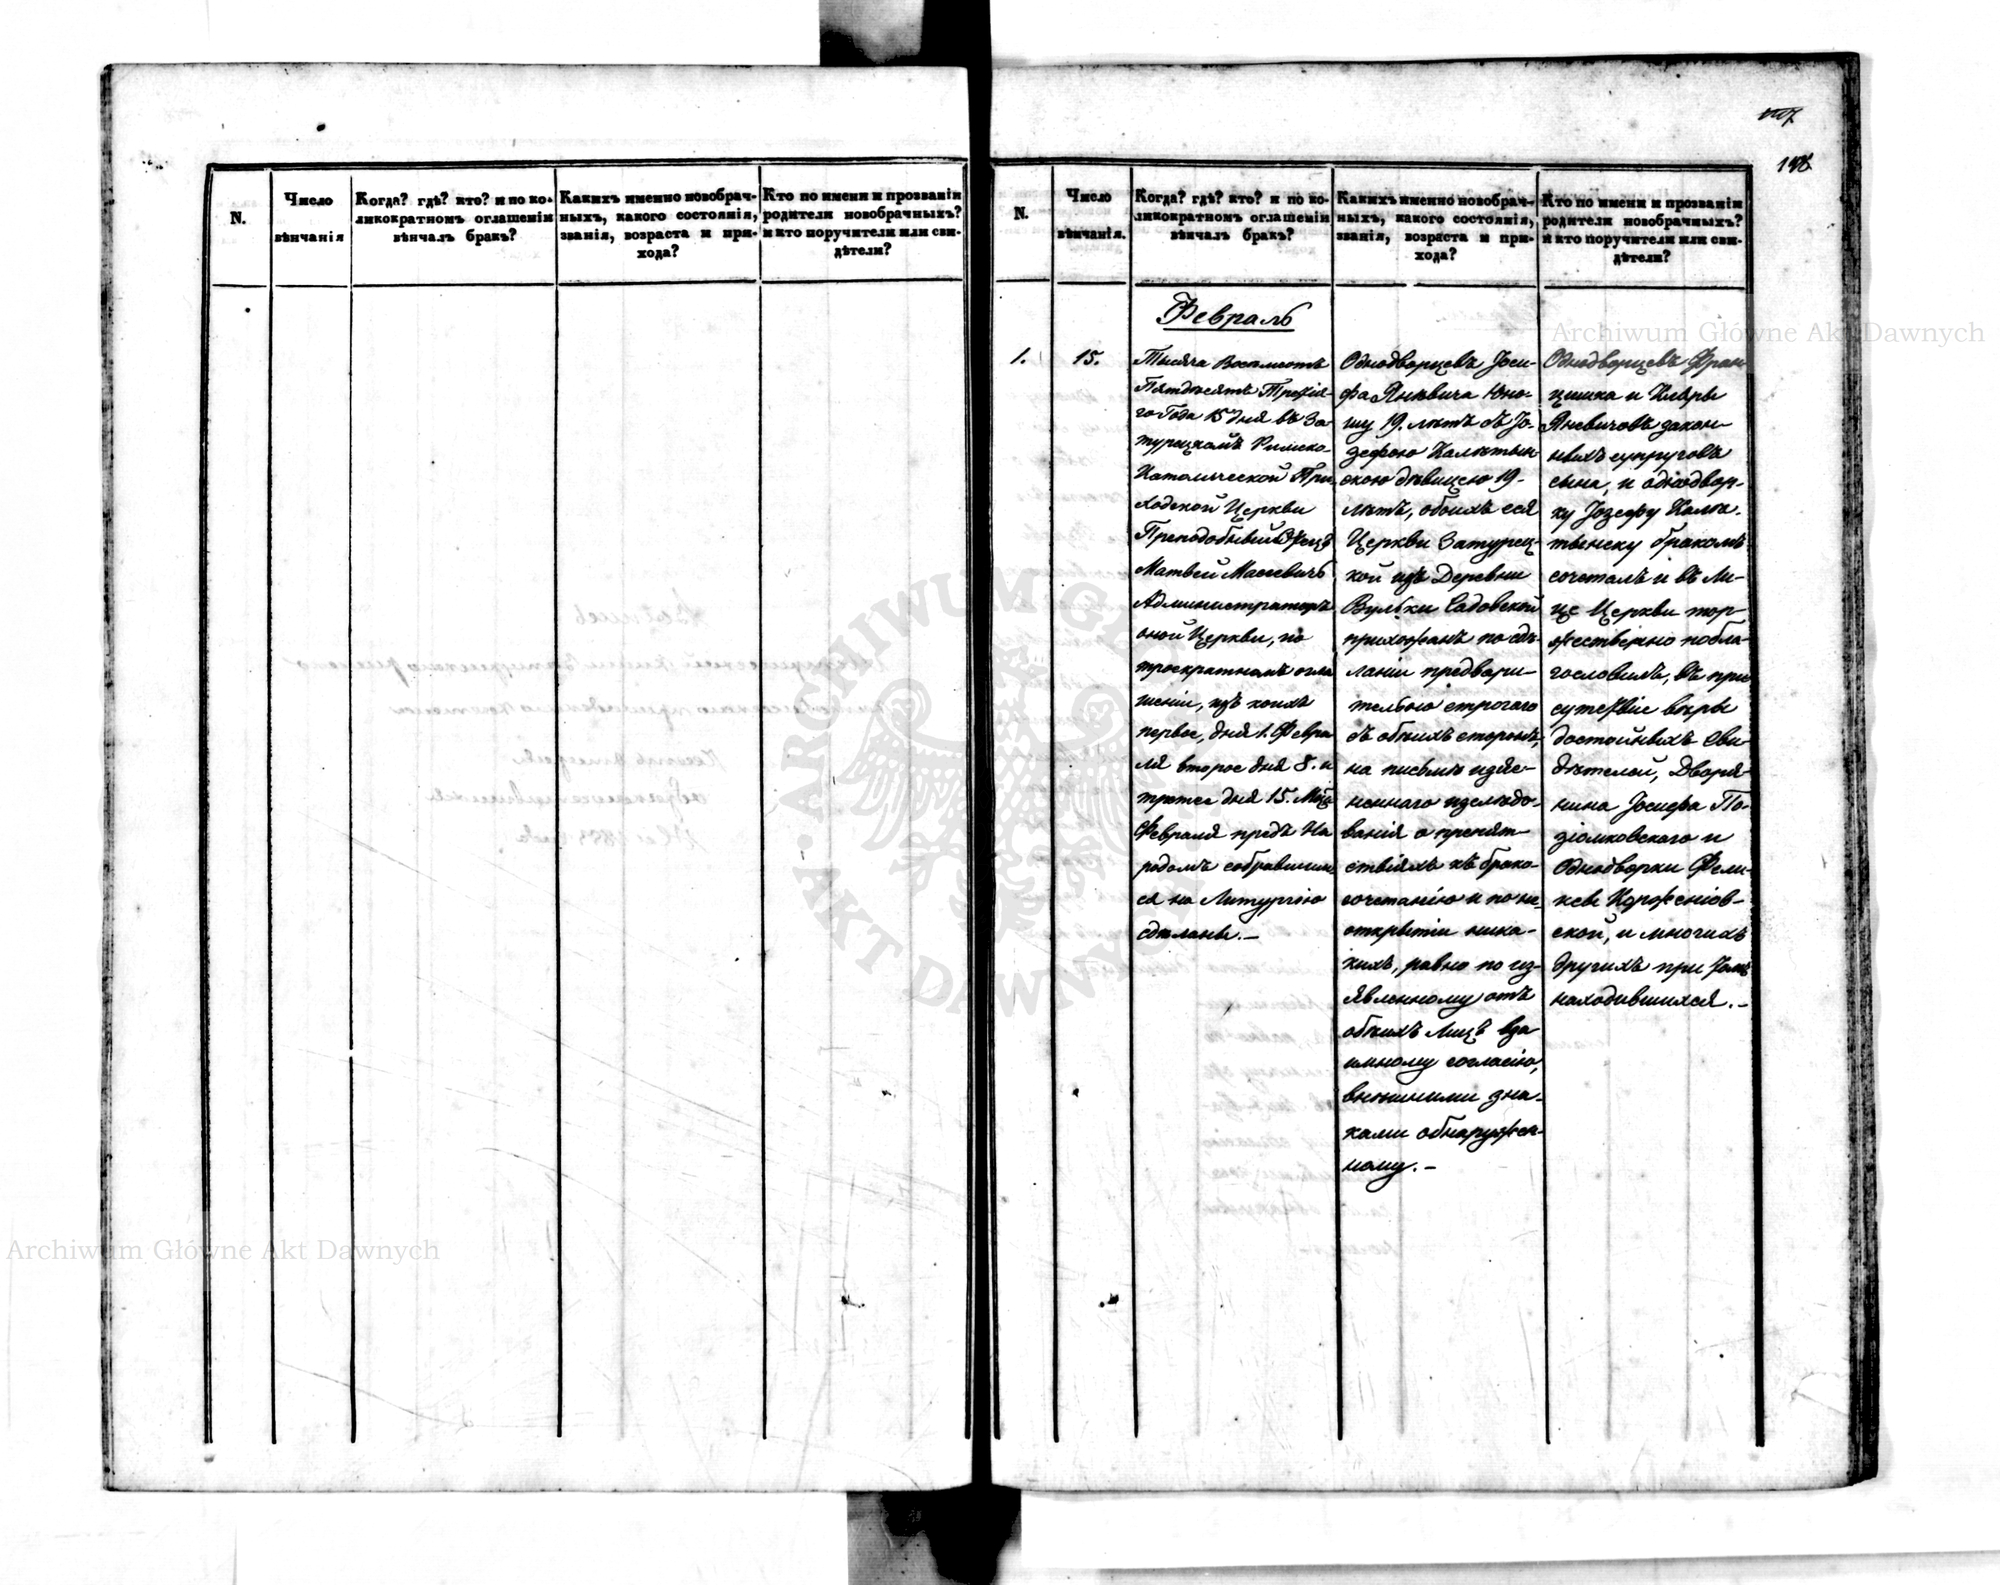 107
196
N.
Число
вѣнчанія
Когда? гдѣ? кто? и по ко-
ликократномъ оглашеніи
вѣнчалъ бракъ?
Какихъ именно новобрач-
ныхъ, какого состоянія,
званія, возраста и при-
хода?
Кто по имени и прозванію
родители новобрачныхъ?
и кто поручители или сви-
дѣтели?
N.
Число
вѣнчанія.
Когда? гдѣ? кто? и по ко-
ликократномъ оглашеніи
вѣнчалъ бракъ?
Какихъ именно новобрач-
ныхъ, какого состоянія,
званія, возраста и при-
хода?
Кто по имени и прозванію
родители новобрачныхъ?
и кто поручители или сви-
дѣтели?
Февраль
1.
15.
Тысяча Восемсотъ
Пятдесятъ Третія-
го Года 15 дня въ За-
турецкомъ Римско-
Католической При-
ходской Церкви
Преподобный Ксендз
Матвей Масевичь
Администраторъ
оной Церкви, по
троекратномъ огла
шеніи, изъ коихъ
первое, дня 1. Февра
ля второе дня 8. и
третее дня 15. Мца
Февраля предъ На
родомъ собравшим
ся на Литургію
сдѣланы.—
Однодворцевъ Іоси-
фа Яневича Юно-
шу 19. лѣтъ съ Іо-
зефою Калѣтын-
скою дѣвицею 19-
лѣтъ, обоихъ сея
Церкви Затурец-
кой изъ Деревни
Вульки Садовской
прихожанъ по сдѣ-
ланіи предвори-
тельною строгаго
съ обоихъ сторонъ,
на письмѣ изъяс-
неннаго изслѣдо-
ванія о препят-
ствіяхъ къ брако-
сочетанію и по не-
открытіи ника-
кихъ, равно по из-
явленному отъ
обоихъ лицъ вза
имному согласію,
внѣшними зна-
ками обнаружен-
ному.—
Однодворцевъ Фран
цишка и Клары
Яневичовъ закон-
ныхъ супруговъ
сына, и однодвор-
ку Іозефу Калѣ-
тынску бракомъ
сочеталъ и въ Ли-
це Церкви тор-
жественно побла-
гословилъ, въ при
сутствіе вѣры
достойныхъ Сви-
дѣтелей, Дворя-
нина Іосифа По-
зіомковскаго и
Однодворки Фели-
ксы Корженіов-
ской, и многихъ
другихъ при томъ
находившихся.—
Archiwum Główne Akt Dawnych
Archiwum Główne Akt Dawnych
ARCHIWUM GŁÓWNE AKT DAWNYCH